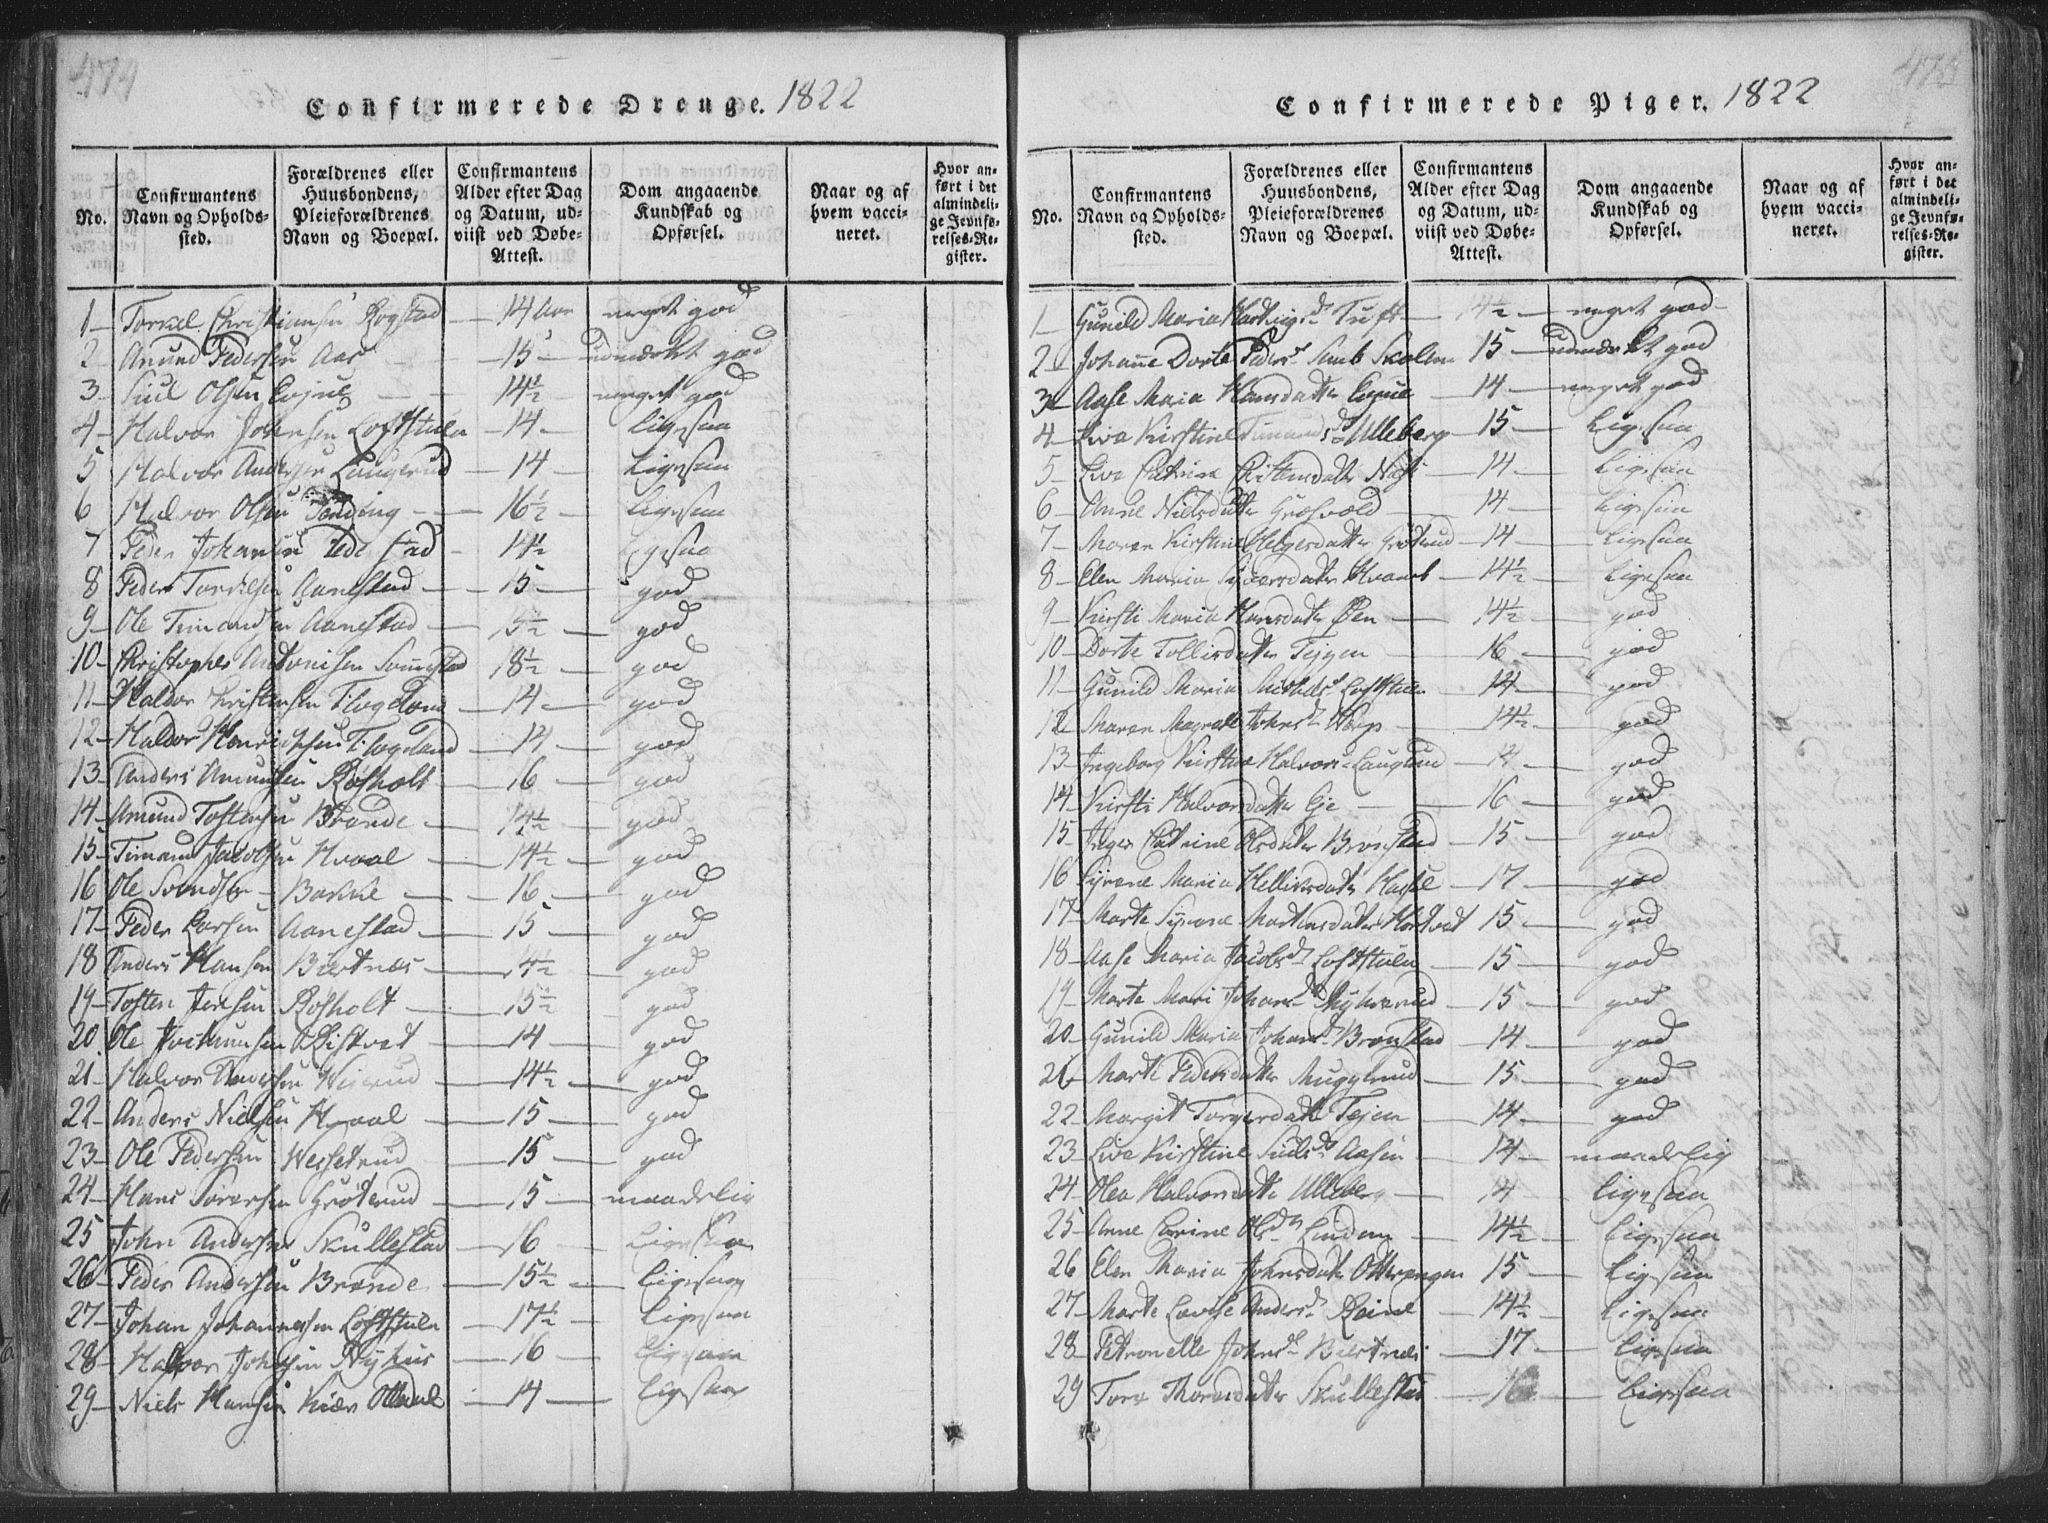 474
Confirmerede Drenge. 1822
No.
Confirmantens Navn og Opholds-sted.
Forældrenes eller Huusbondens, Pleieforældrenes Navn og Boepæl.
Confirmantens Alder efter Dag og Datum, ud-viist ved Døbe-Attest.
Dom angaaende Kundskab og Opførsel.
Naar og af hvem vacci-neret.
Hvor an-ført i det almindeli-ge Jevnfø-relses-Re-gister.
1 Torkel Christiansen Rogstad 14 Aar meget god
2 Amund Pedersen Aas 15 udmærket god
3 Siul Olsen Evju 14½ meget god
4 Halvor Johnsen Loftstuln 14 ligesaa
5 Halvor Andersen Laugerud 14 Ligesaa
6 Halvor Olsen 16½ Ligesaa
7 Peder Johansen 14½ Ligesaa
8 Peder Torkelsen Aanestad 15 god
9 Ole Timandsen Aanestad 15½ god
10 Christopher Antonisen 18½ god
11 Haldor Christensen 14 god
12 Haldor Henrichsen 14 god
13 Anders Amundsen Rosholt 16 god
14 Amund Tostensen Brønde 14½ god
15 Timand Jacobsen Hvaal 14½ god
16 Ole Svendsen Bakke 16 god
17 Peder Larsen Aanestad 15 god
18 Anders Hansen Biertnæs 14½ god
19 Tosten Jensen Rosholt 15½ god
20 Ole 14 god
21 Halvor Andersen 14½ god
22 Anders Nielsen Hvaal 15 god
23 Ole Pedersen Wessetrud 15 god
24 Hans Sørensen Grøterud 15 maadelig
25 John Andersen Skullestad 16 Ligesaa
26 Peder Andersen Brønde 15½ Ligesaa
27 Johan Johannesen Loftstuln 17½ Ligesaa
28 Halvor Johnsen Nyhus 16 Ligesaa
29 Niels Hansen 14 Ligesaa
475
Confirmerede Piger. 1822
No.
Confirmantens Navn og Opholds-sted.
Forældrenes eller Huusbondens, Pleieforældrenes Navn og Boepæl.
Confirmantens Alder efter Dag og Datum, ud-viist ved Døbe-Attest.
Dom angaaende Kundskab og Opførsel.
Naar og af hvem vacci-neret.
Hvor an-ført i det almindeli-ge Jevnfø-relses-Re-gister.
1 Gunild Maria Hartvigsd. Tuft 14½ meget god
2 Johanne Dorte Pedersd. 15 udmærket god
3 Aase Maria Hansdatter Evjue 14 meget god
4 Liva Kirstine Timandsd. Ulleberg 15 Ligesaa
5 Liva Catrine 14 Ligesaa
6 Anne Nielsdatter Græsvold 14 Ligesaa
7 Maren Kirstine Helgersdatter Grøterud 14 Ligesaa
8 Elen Maria 14½ Ligesaa
9 Kirsti Maria Hansdatter Øen 14½ god
10 Dorte Tollisdatter Tejgen 16 god
11 Gunild Maria Loftstuln 14 god
12 Maren 14½ god
13 Ingeborg Kirstine Halvors. 14 god
14 Kirsti Halvorsdatter Eje 16 god
15 Inger Catrine Olsdatter Brønstad 15 god
16 Syrene Maria Hellissdatter 17 god
17 Marte Syrene Mortensdatter 15 god
18 Aase Maria Jacobsd. Loftstuln 15 god
19 Marte Mari Johansd. 15 god
20 Gunild Maria Johansd. Brønstad 14 god
21 Marte Pedersdatter Muggerud 15 god
22 Margit Torgersdatter Tejen 14 god
23 Liva Kirstine Siulsd. Aasen 14 maadelig
24 Olea Halvorsdatter Ulleberg 14 Ligesaa
25 Anne Carine Olsd. 14½ Ligesaa
26 Elen Maria Johnsdatter 15 Ligesaa
27 Marte Lovise Andersd. 14½ Ligesaa
28 Petronelle Johnsd. Biertnæs 17 Ligesaa
29 Tore Thorsdatter Skullestad 16 Ligesaa